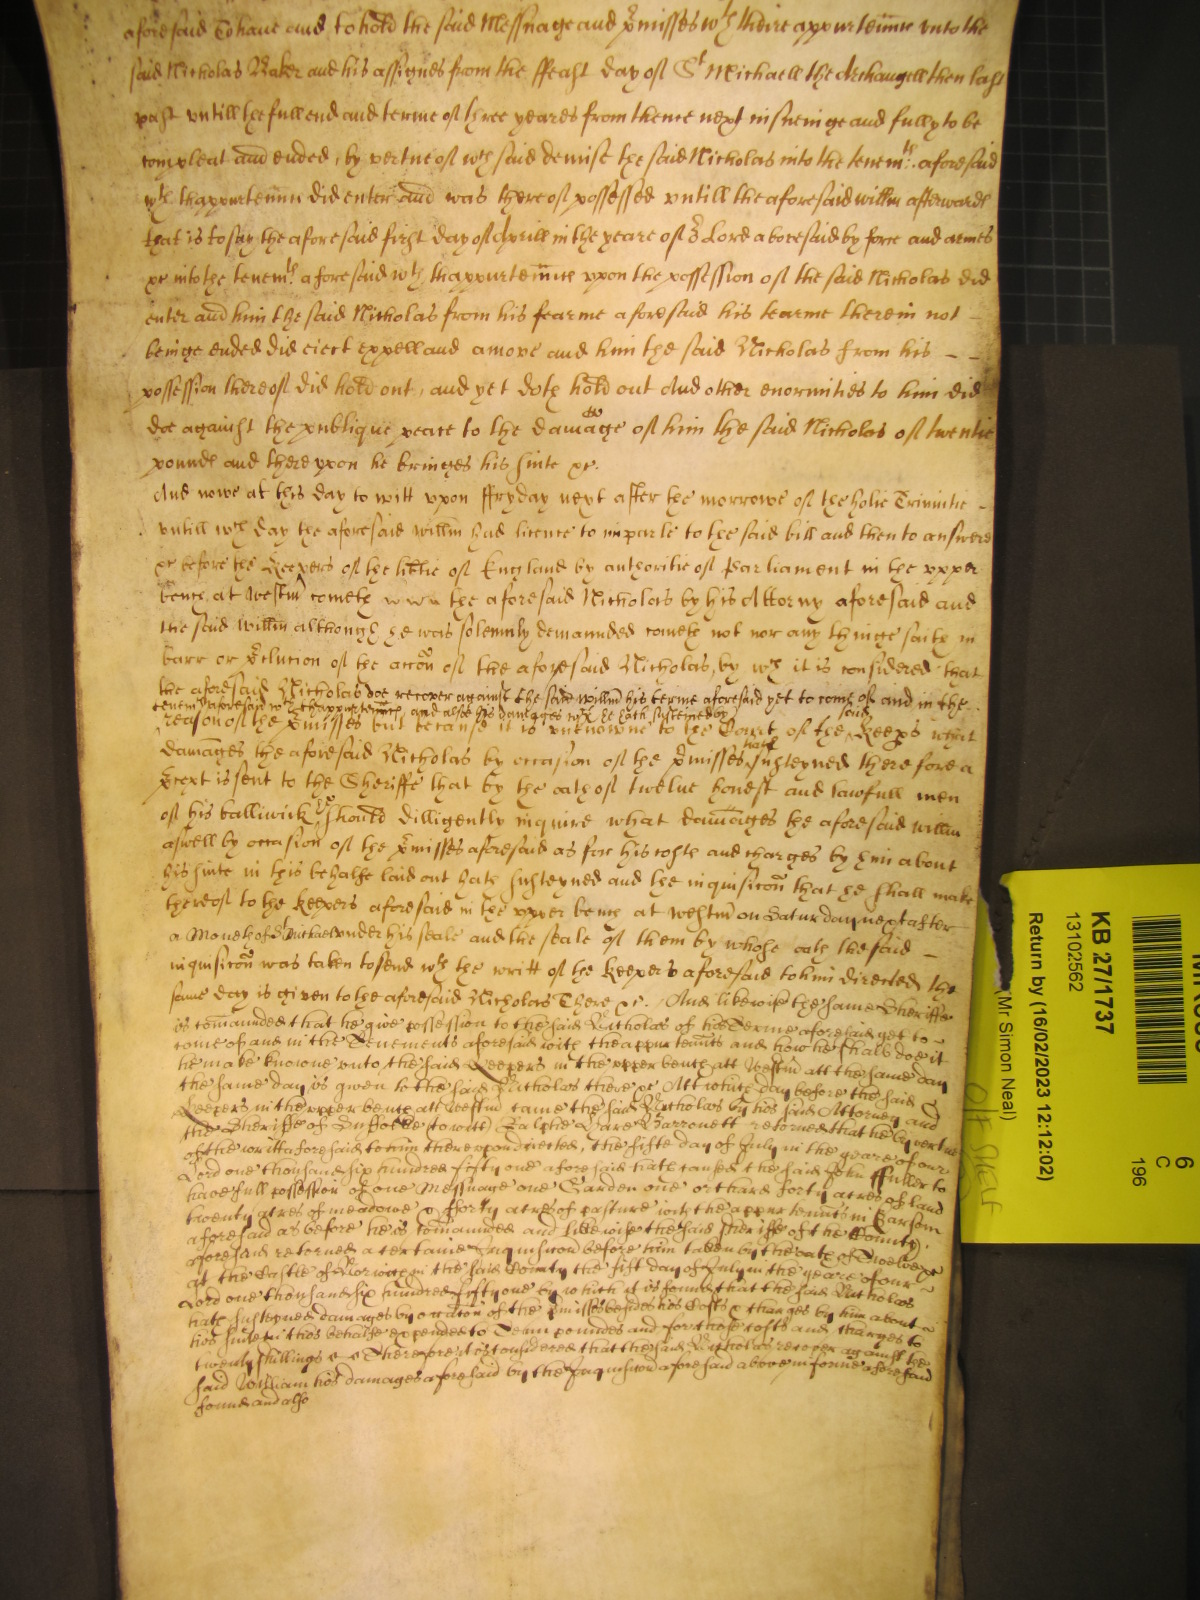 aforesaid To haue and to hold the said Messuage and p̃misses wth theire appurten̄nc vnto the
said Nicholas Baker and his assignes from the ffeast day of St Michaell the Archangell then last
past vntill the full end and terme of three yeares from thence next insueinge and fully to be
compleat and ended, by vertue of wch said demise the said Nicholas into the tenemts. aforesaid
wth thappurten̄nc did enter and was thereof possessed vntill the aforesaid willm afterwards
that is to say the aforesaid first day of Aprill in the yeare of oʳ Lord abouesaid by force and armes
&c into the tenemts. aforesaid wth thappurten̄ncs vpon the possession of the said Nicholas did
enter and him the said Nicholas from his fearme aforesaid his tearme therein not -
beinge ended did eiect expell and amove and him the said Nicholas from his - -
possession thereof did hold out, and yet doth hold out And other enormities to him did
doe against the publique peace to the damage of him the said Nicholas of twentie
pounds and therevpon he bringes his suite &c.
And nowe at this day to witt vpon ffryday next after the morrowe of the holie Trinitie -
vntill wch day the aforesaid willm had licence to imparle to the said bill and then to answere
&c before the Keepers of the lib̃tie of England by authoritie of Parliament in the vpper
bench at Westm̄ cometh the aforesaid Nicholas by his Attorny aforesaid and
the said willm̄ although he was solemnly demaunded cometh not nor any thinge saith in
barr or p̃clucion of the acc̃on of the aforesaid Nicholas, by wch it is considered that
the aforesaid Nicholas doe recover against the said willm̄ his terme aforesaid yet to come of and in the
tenemts aforesaid wth thappurten̄ncs and alsoe his damages wch he hath susteined by
reason of the p̃misses but because it is vnknowne to the Court of the said Keepers what
damages the aforesaid Nicholas by occasion of the p̃misses hath susteyned therefore a
p̃cept is sent to the Sheriffe that by the oath of twelue honest and lawfull men
of his balliwick he should dilligently inquire what dam̄ages the aforesaid willm
aswell by occasion of the p̃misses aforesaid as for his costs and charges by him about
his suite in this behalfe laid out hath susteyned and the inquisic̃on that he shall make
thereof to the keepers aforesaid in the vpper bench at westm̄ on Saturday next after
a Moneth of St Michael vnder his seale and the seale of them by whose oath the said -
inquisic̃on was taken to send wth the writt of the keepers aforesaid to him directed the
same day is given to the aforesaid Nicholas There &c. And likewise the same Sheriffe
is com̄aunded that he give possession to the said Nicholas of his Terme aforesaid yet to -
come of and in the Tenements aforesaid with the appurtenn̄ts and how he shall doe it
he make knowne vnto the said Keepers in the vpper bench att Westm̄ att the same day
the same day is given to the said Nicholas there &c Att which day before the said
Keepers in the vpper bench att Westm̄ came the said Nicholas by his said Attorney and
the Sheriffe of Suffolke (to witt) Ralphe Hare Barronett retorned that he by vertue
of the writt aforesaid to him therevpon directed, the fifte day of July in the yeare of our
Lord one thousand six hundred fifty one aforesaid hath caused the said John ffuller to
have full possession of one Messuage one Garden one orchard forty acres of land
twenty acres of meadowe & fforty acres of pasture with the appurtenn̄ts in
aforesaid as before he is com̄aunded and likewise the said Sheriffe of the County
aforesaid retorned a certaine Inquisicon before him taken by the oath of Twelve &c
at the Castle of Norwich in the said County the fift day of July in the yeare of our
Lord one thousand six hundred fifty one by which it is found that the said Nicholas
hath susteyned damages by occac̃on of the p̃misses besides his Costs & charges by him about
his suite in this behalfe expended to Tenn poundes and for those costs and charges to
twenty shillings Therefore it is considered that the said Nicholas recover against the
said William his damages aforesaid by the Inquisicon aforesaid above in forme aforesaid
found and also
KB 27/1737
13102562
Return by (16/02/2023 12:12:02)
(Mr Simon Neal)
6
C
196